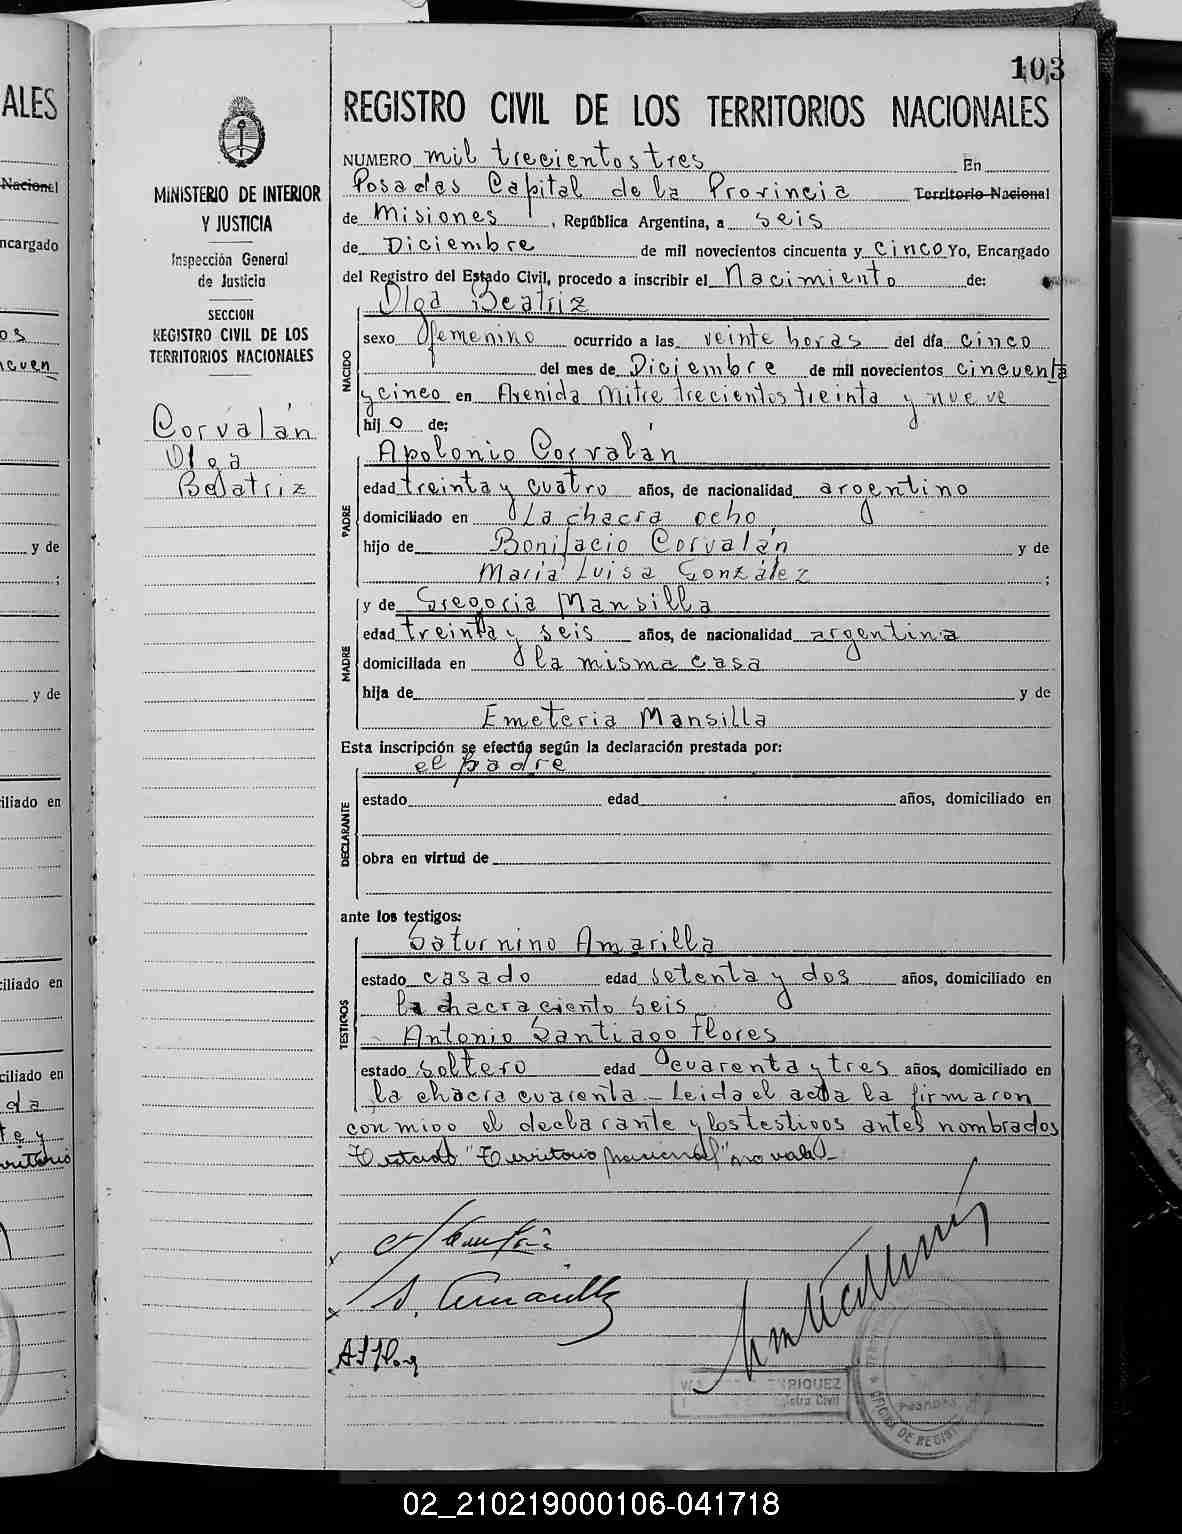 103
ALES
Nacional
ncargado
os
ncuen
y de
;
y de
iliado en
iliado en
ciliado en
da
te y
MINISTERIO DE INTERIOR
Y JUSTICIA
Inspección General
de Justicia
SECCION
REGISTRO CIVIL DE LOS
TERRITORIOS NACIONALES
Corvalán
Olga
Beatriz
REGISTRO CIVIL DE LOS TERRITORIOS NACIONALES
NUMERO mil trecientos tres En
Posadas Capital de la Provincia Territorio Nacional
de Misiones, República Argentina, a seis
de Diciembre de mil novecientos cincuenta y cinco Yo, Encargado
del Registro del Estado Civil, procedo a inscribir el Nacimiento de:
Olga Beatriz
NACIDO
sexo femenino ocurrido a las veinte horas del día cinco
del mes de Diciembre de mil novecientos cincuenta
y cinco en Avenida Mitre trecientos treinta y nueve
hij o de;
Apolonio Corvalán
PADRE
edad treinta y cuatro años, de nacionalidad argentino
domiciliado en La chacra ocho
hijo de Bonifacio Corvalán y de
María Luisa González ;
y de Gregoria Mansilla
MADRE
edad treinta y seis años, de nacionalidad argentina
domiciliada en la misma casa
hija de y de
Emeteria Mansilla
Esta inscripción se efectúa según la declaración prestada por:
el padre
DECLARANTE
estado edad años, domiciliado en
obra en virtud de
ante los testigos:
Saturnino Amarilla
TESTIGOS
estado casado edad setenta y dos años, domiciliado en
la chacra ciento seis
Antonio Santiago Flores
estado soltero edad cuarenta y tres años, domiciliado en
la chacra cuarenta - Leida el acta la firmaron
conmigo el declarante y los testigos antes nombrados
Testado "Territorio Nacional" no vale -
S. Amarilla
RIQUEZ
istro Civil
POSADAS
OFICINA DE REGIST
02_210219000106-041718